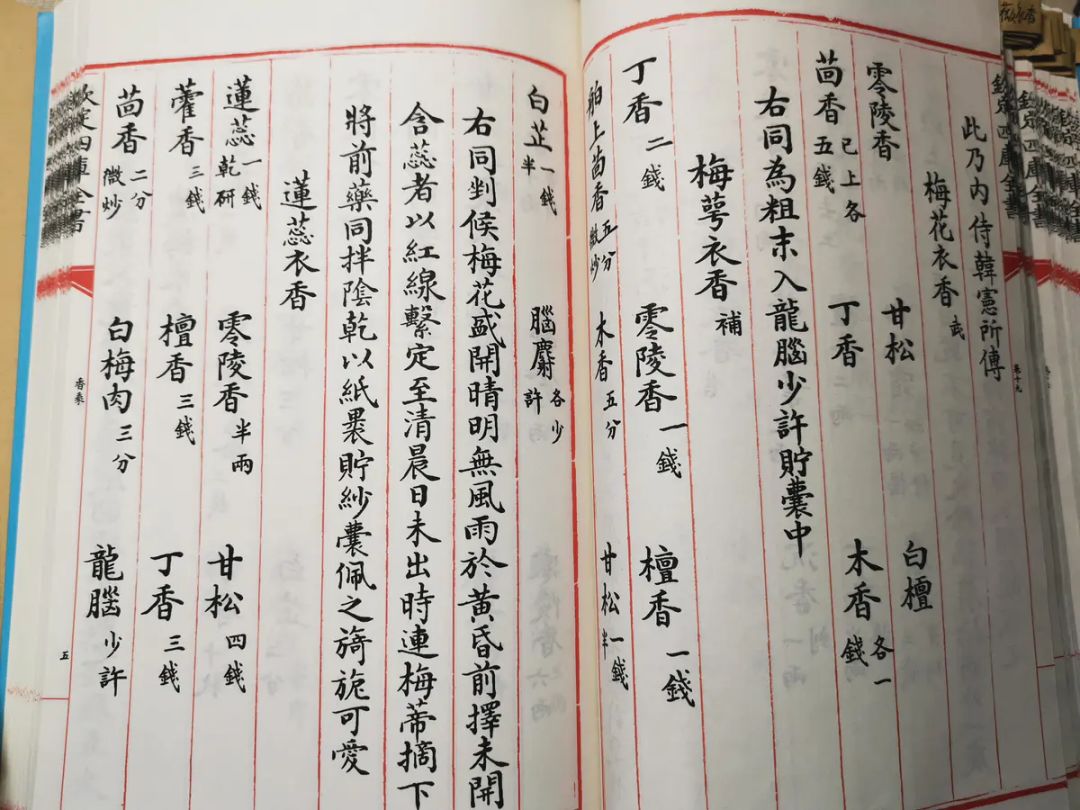 欽定四庫全書
卷十九
此乃內侍韓憲所傳
梅花衣香 武
零陵香 甘松 白檀
茴香 已上各五錢 丁香 木香 各一錢
右同為粗末入龍腦少許貯囊中
梅萼衣香 補
丁香 二錢 零陵香 一錢 檀香 一錢
舶上茴香 五分微炒 木香 五分 甘松 一錢半
白芷 一錢半 腦麝 各少許
右同剉候梅花盛開晴明無風雨於黃昏前擇未開
含蕊者以紅線繫定至清晨日未出時連梅蒂摘下
將前藥同拌陰乾以紙裹貯紗囊佩之旖旎可愛
蓮蕊衣香
蓮蕊 一錢乾研 零陵香 半兩 甘松 四錢
藿香 三錢 檀香 三錢 丁香 三錢
茴香 二分微炒 白梅肉 三分 龍腦 少許
欽定四庫全書
香乘
五